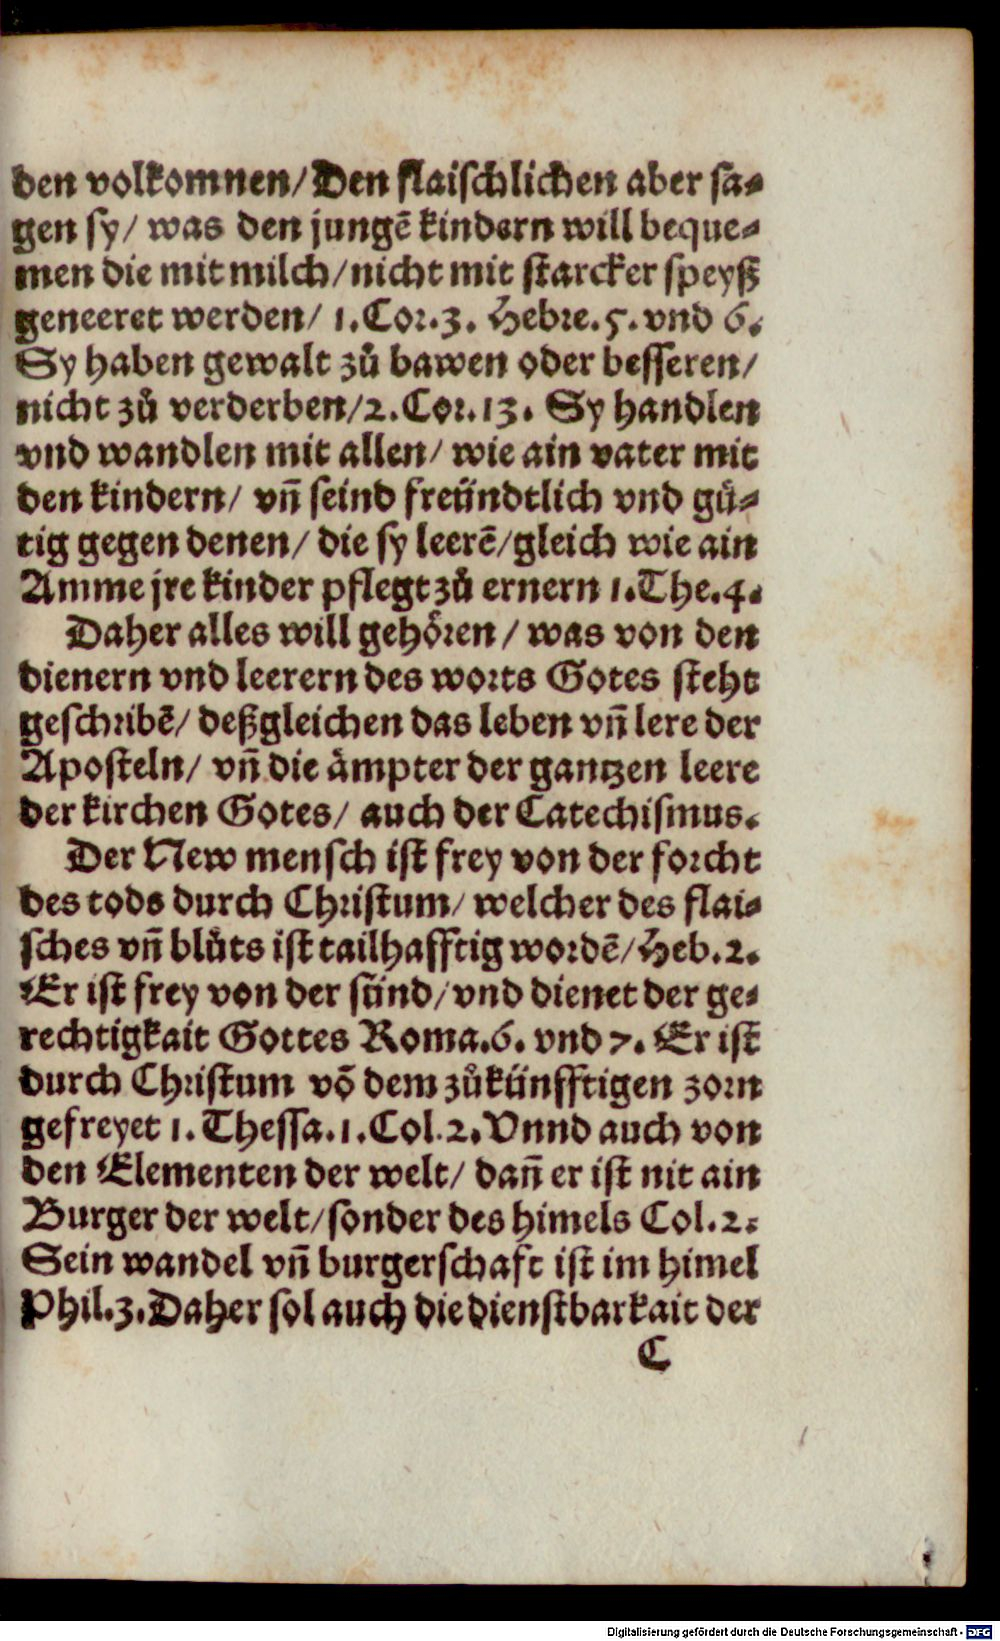 den volkomnen/ Den flaischlichen aber sa⸗
gen sy/ was den jungẽ kindern will beque⸗
men die mit milch/ nicht mit starcker speyß
geneeret werden/ 1. Cor. 3. Hebre. 5. vnd 6.
Sy haben gewalt zů bawen oder besseren/
nicht zů verderben/ 2. Cor. 13. Sy handlen
vnd wandlen mit allen/ wie ain vater mit
den kindern/ vñ seind freündtlich vnd gů⸗
tig gegen denen/ die sy leerẽ/ gleich wie ain
Amme jre kinder pflegt zů ernern 1. The. 4.
Daher alles will gehören/ was von den
dienern vnd leerern des worts Gotes steht
geschribẽ/ deßgleichen das leben vñ lere der
Aposteln/ vñ die ämpter der gantzen leere
der kirchen Gotes/ auch der Catechismus.
Der New mensch ist frey von der forcht
des tods durch Christum/ welcher des flai⸗
sches vñ blůts ist tailhafftig wordẽ/ Heb. 2.
Er ist frey von der sünd/ vnd dienet der ge⸗
rechtigkait Gottes Roma. 6. vnd 7. Er ist
durch Christum võ dem zůkünfftigen zorn
gefreyet 1. Thessa. 1. Col. 2. Vnnd auch von
den Elementen der welt/ dañ er ist nit ain
Burger der welt/ sonder des himels Col. 2.
Sein wandel vñ burgerschaft ist im himel
Phil. 3. Daher sol auch die dienstbarkait der
C
Digitalisierung gefördert durch die Deutsche Forschungsgemeinschaft - DFG